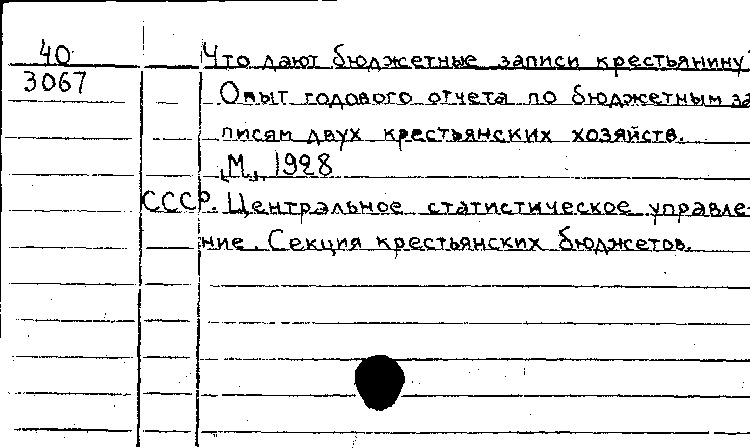 40
3067
Что дают бюджетные записи крестьянину?
Опыт годового отчета по бюджетным за-
писям двух крестьянских хозяйств.
"М.", 1928
СССР. Центральное статистическое управле-
ние. Секция крестьянских бюджетов.